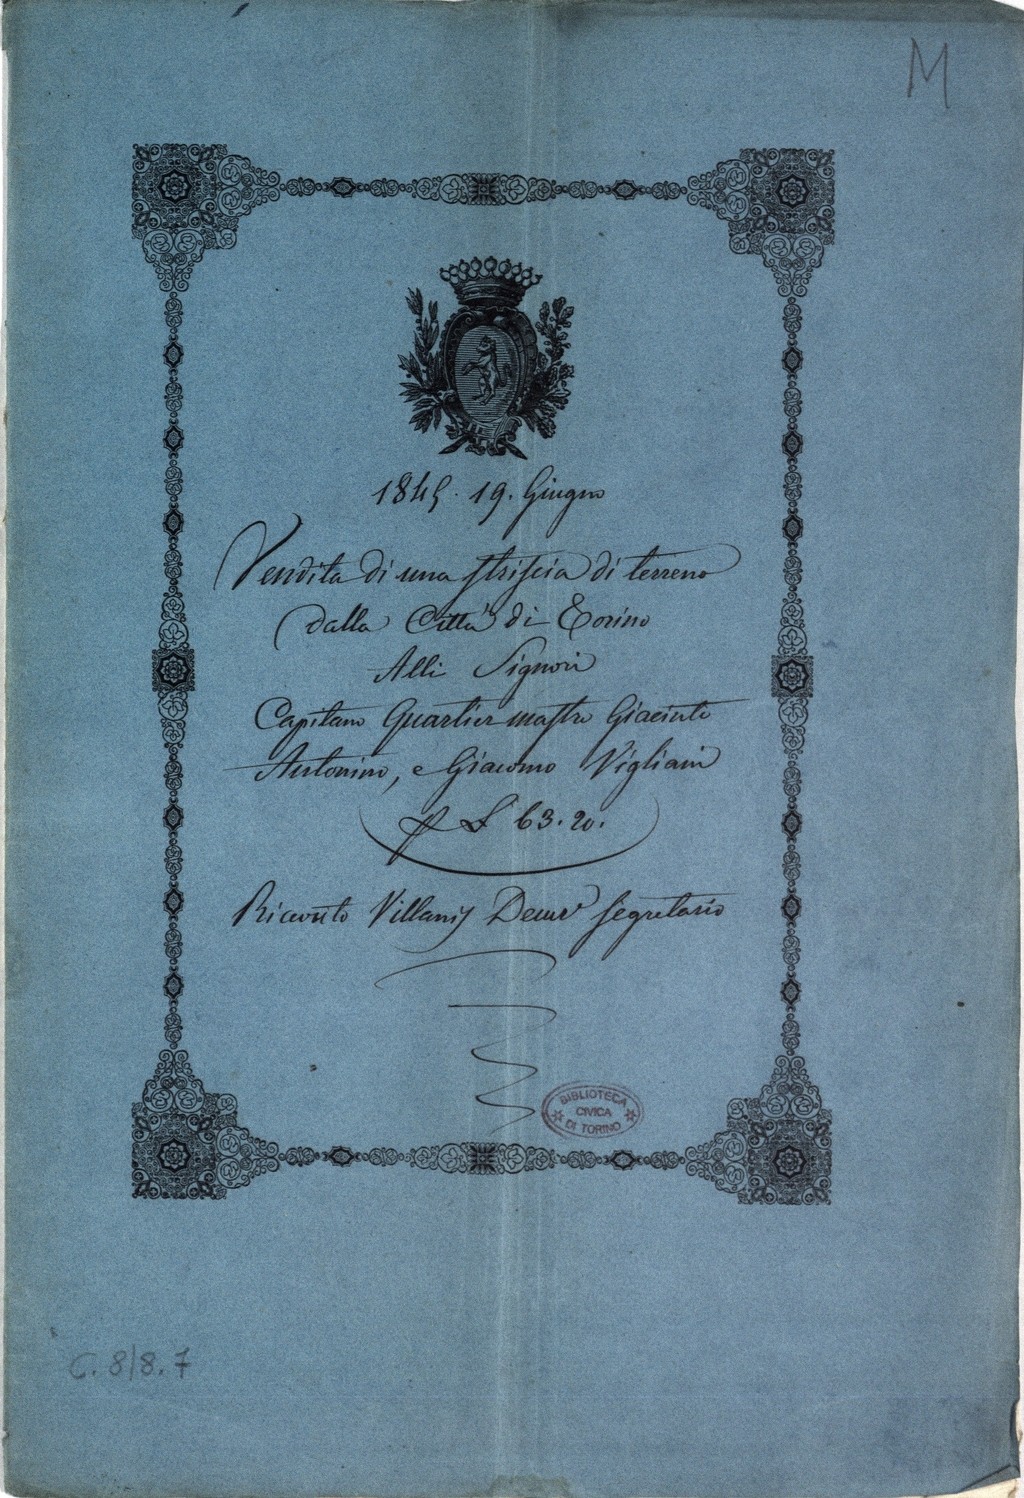 M
1845. 19. Giugno
Vendita di una striscia di terreno
dalla Città di Torino
Alli Signori
Capitano Quartier mastro Giacinto
Antonino, e Giacomo Vigliani
p £ 63. 20.
Ricevuto Villanis Segretario
BIBLIOTECA
CIVICA
DI TORINO
C. 8/8. 7